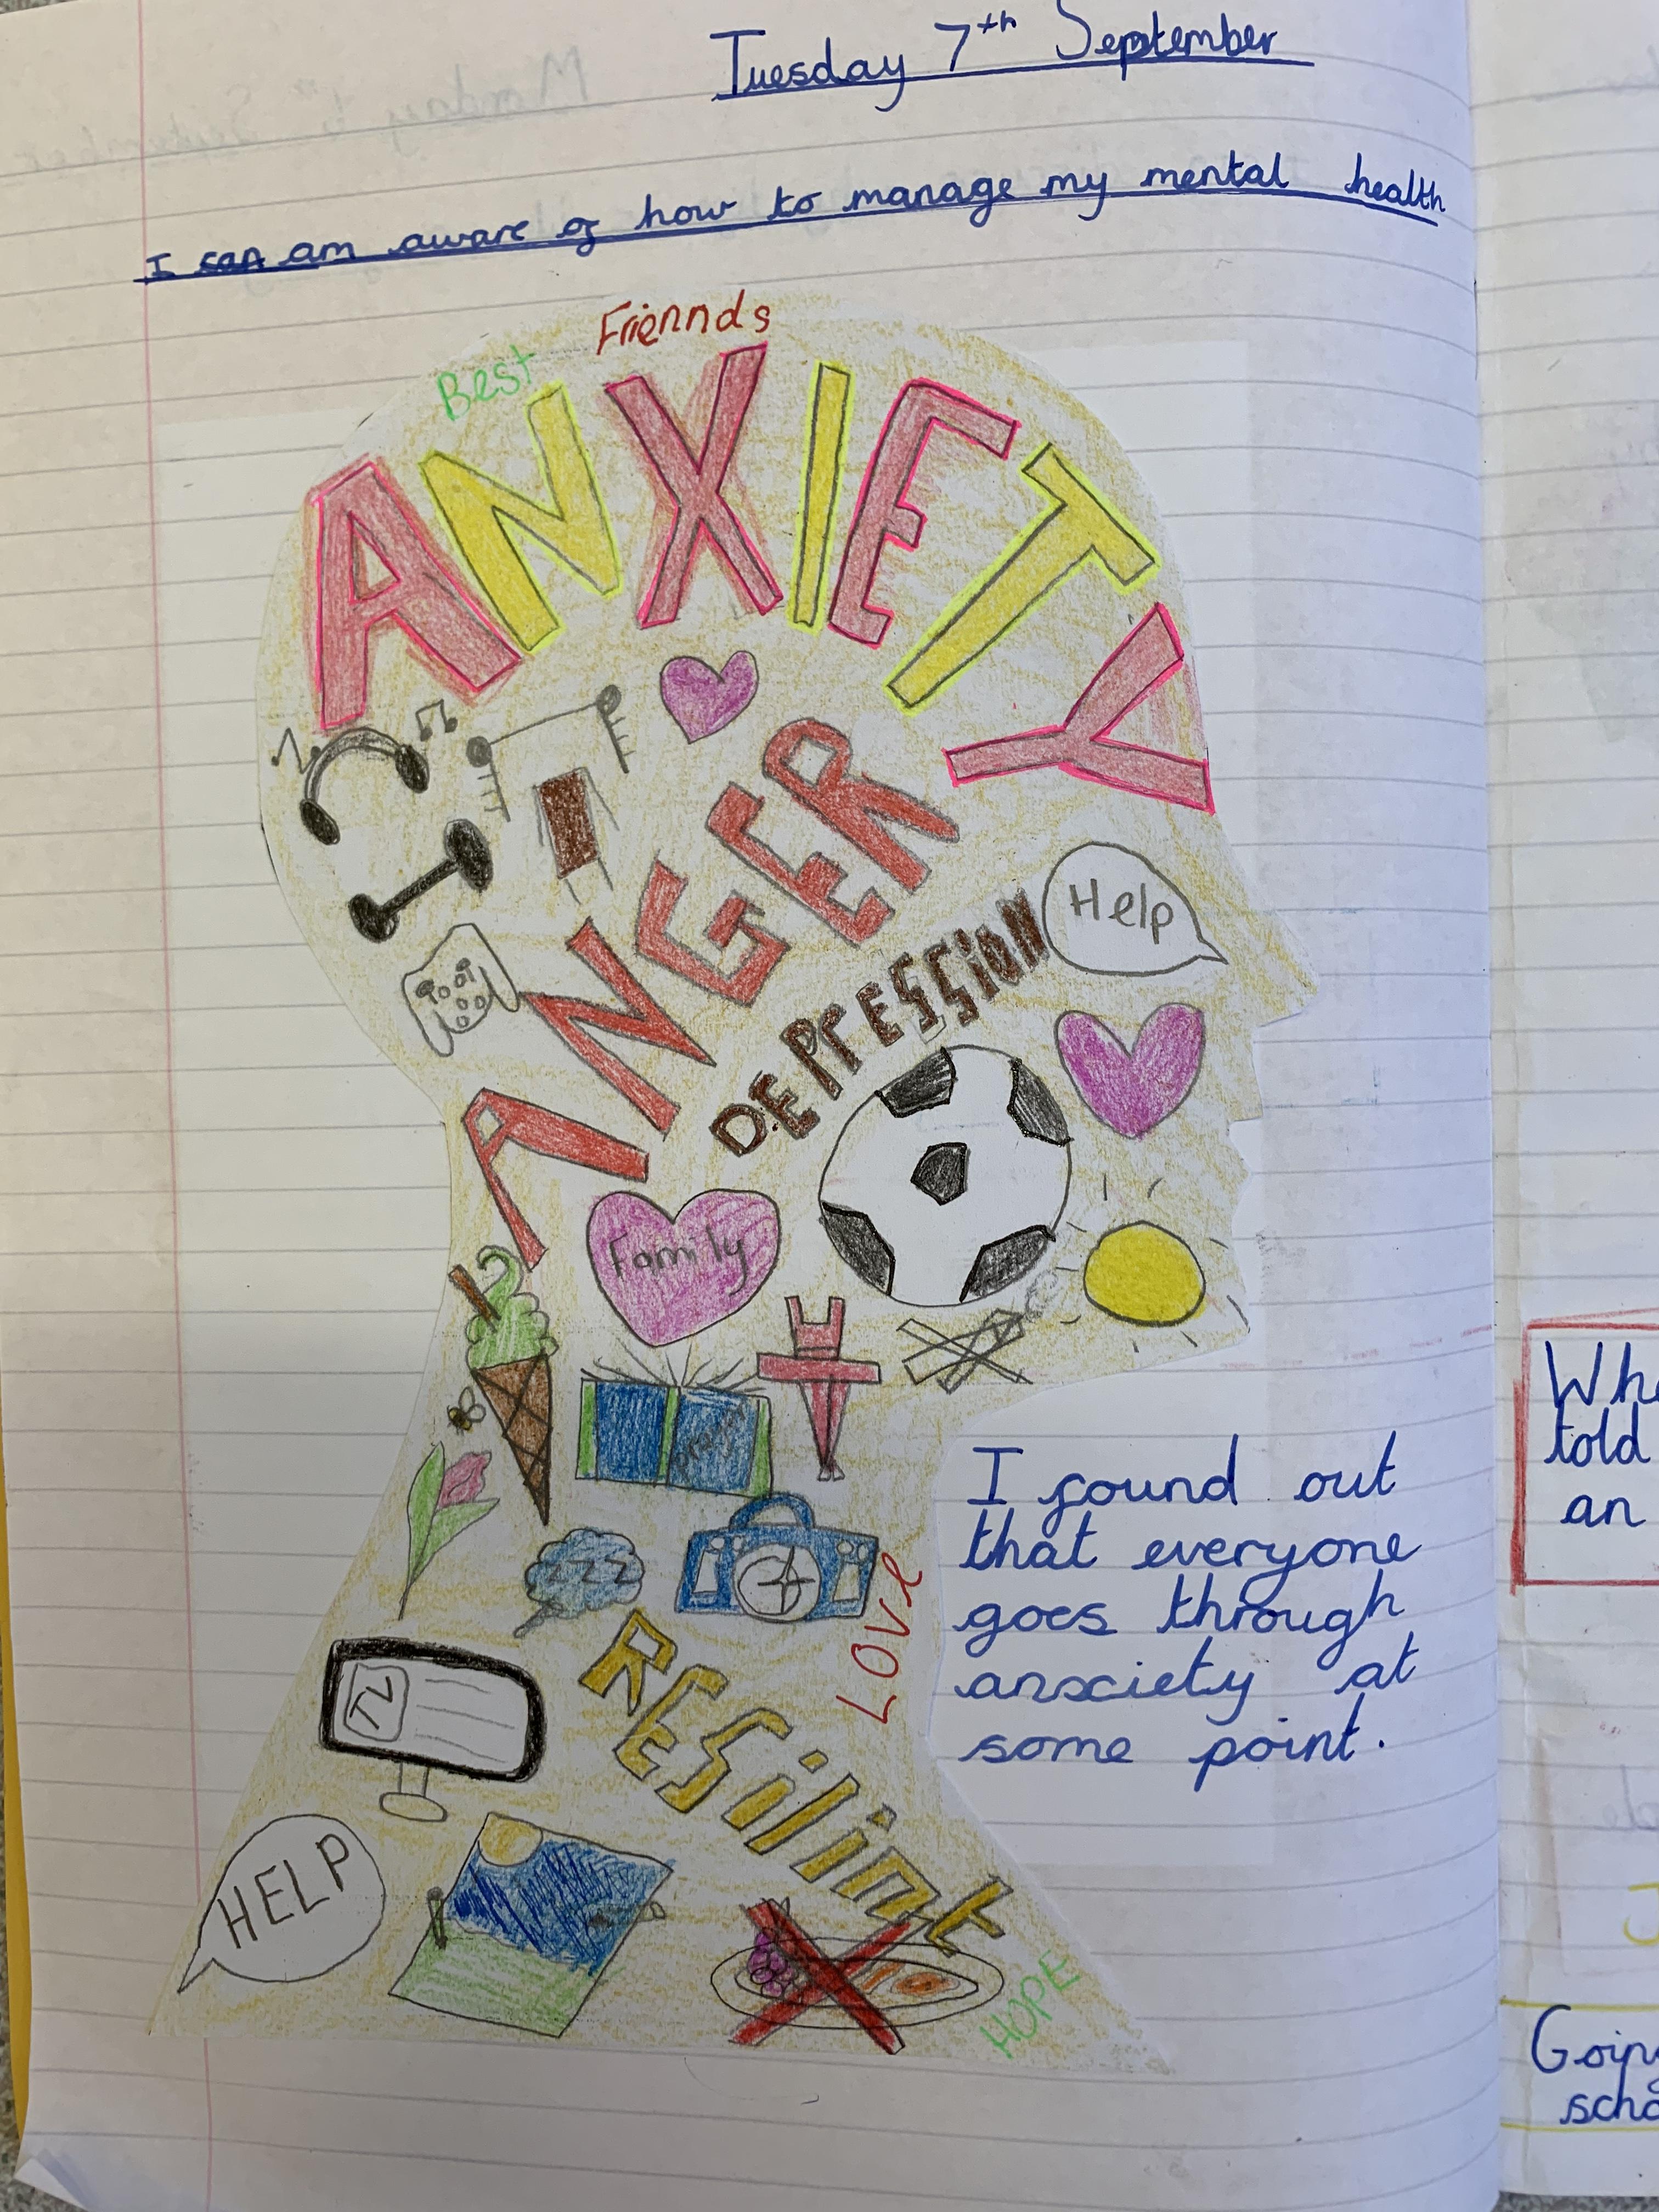 Tuesday 7th September
I can am aware of how to manage my mental health
Best Friennds
ANXIETY
ANGER
Help
DEPRESSION
Family
zzz
Love
TV
RESilint
HELP
HOPE
I found out
that everyone
goes through
anxciety at
some point.
told
an